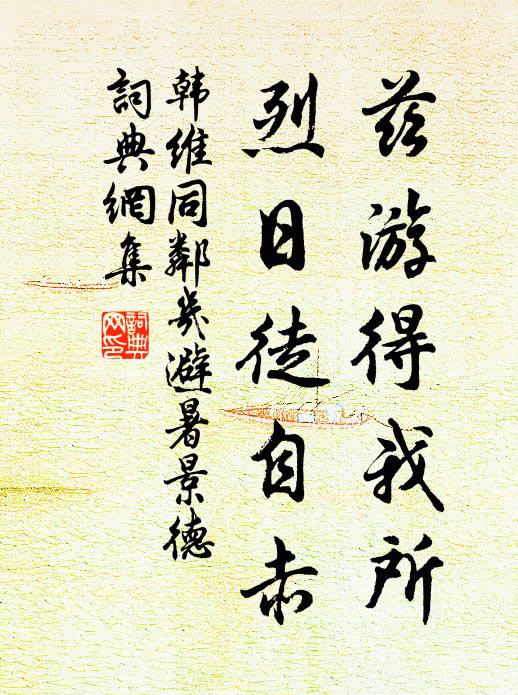 茲游得我所
烈日徒自赤
韩維同鄰幾避暑景德
詞典網集
詞典
网印